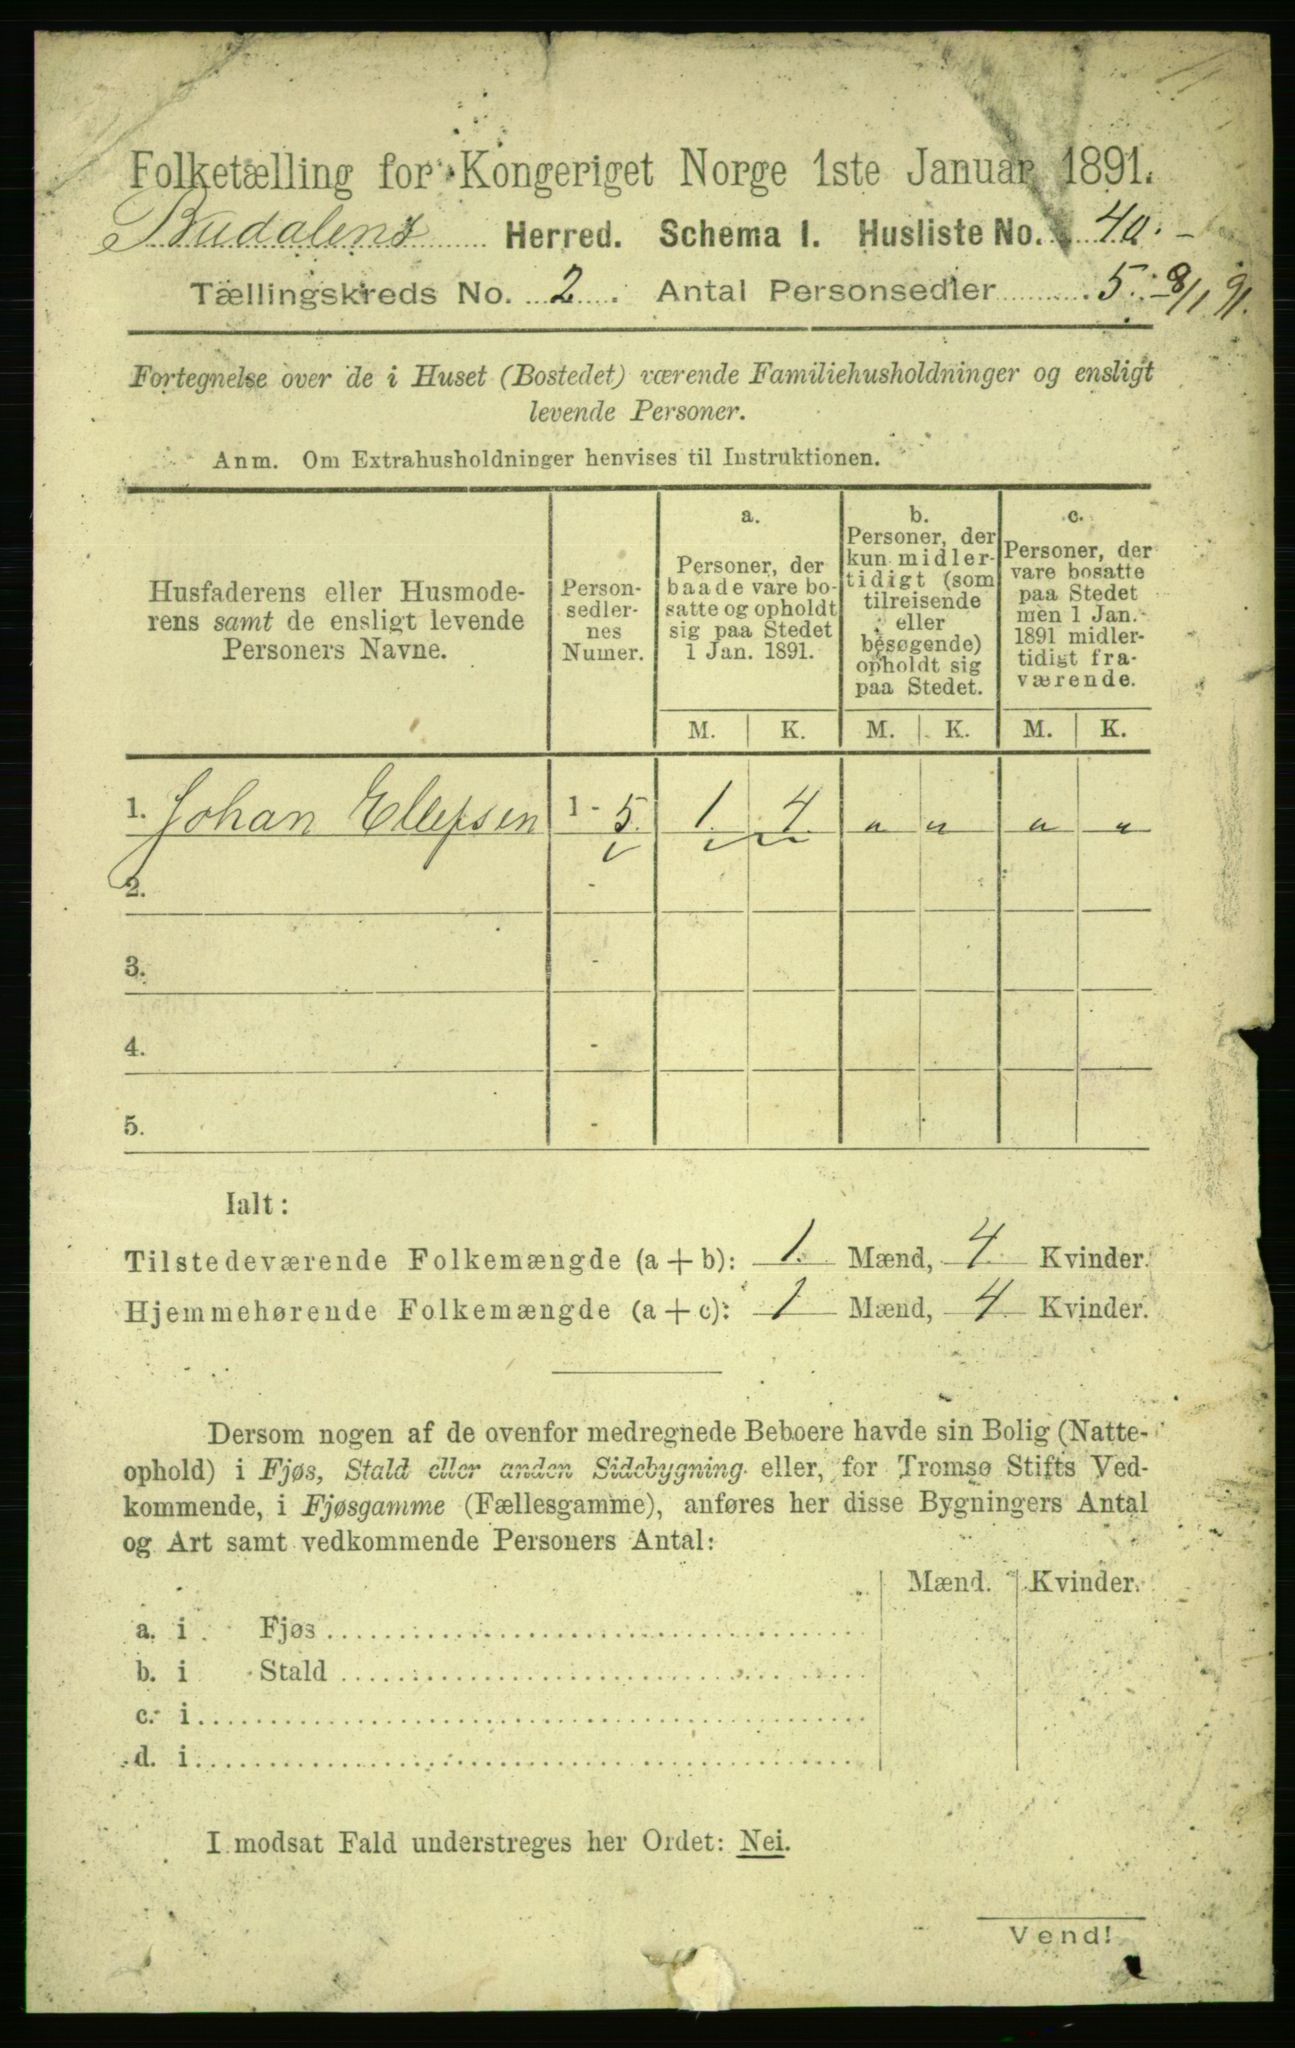 Folketælling for Kongeriget Norge 1ste Januar 1891.
Budalens Herred. Schema I. Husliste No. 40.
Tællingskreds No. 2. Antal Personsedler 5. 8/1 91.
Fortegnelse over de i Huset (Bostedet) værende Familiehusholdninger og ensligt
levende Personer.
Anm. Om Extrahusholdninger henvises til Instruktionen.
Husfaderens eller Husmode-
rens samt de ensligt levende
Personers Navne.
Person-
sedler-
nes
Numer.
a.
Personer, der
baade vare bo-
satte og opholdt
sig paa Stedet
1 Jan. 1891.
b.
Personer, der
kun midler-
tidigt (som
tilreisende
eller
besøgende)
opholdt sig
paa Stedet.
c.
Personer, der
vare bosatte
paa Stedet
men 1 Jan.
1891 midler-
tidigt fra-
værende.
M. K. M. K. M. K.
1. Johan Ellefsen 1 - 5. 1. 4. " " " "
2. -
3. -
4. -
5. -
Ialt:
Tilstedeværende Folkemængde (a + b): 1. Mænd, 4. Kvinder.
Hjemmehørende Folkemængde (a + c): 1 Mænd, 4. Kvinder.
Dersom nogen af de ovenfor medregnede Beboere havde sin Bolig (Natte-
ophold) i Fjøs, Stald eller anden Sidebygning eller, for Tromsø Stifts Ved-
kommende, i Fjøsgamme (Fællesgamme), anføres her disse Bygningers Antal
og Art samt vedkommende Personers Antal:
Mænd. Kvinder.
a. i Fjøs
b. i Stald
c. i
d. i
I modsat Fald understreges her Ordet: Nei.
Vend!